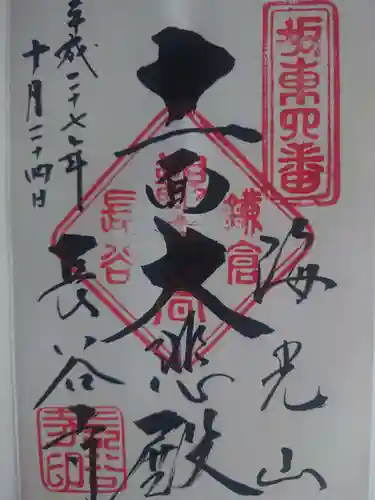 坂東四番
海光山
十一面大悲殿
鎌倉
長谷
長谷寺
平成二十七年
十月二十四日
長谷寺印